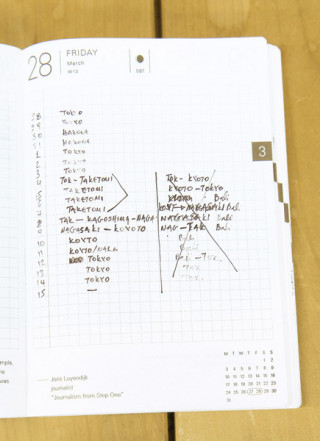 28 FRIDAY
March
W13
087
28 TOKYO
29 TOKYO
30 HAKONE
31 HAKONE
1 TOKYO
2 TOKYO
3 TOKYO
4 TOK - TAKETOMI
5 TAKETOMI
6 TAKETOMI
7 TAKETOMI
8 TAK - KAGOSHIMA - NAGA
9 NAGASAKI - KOYOTO
10 KOYTO
11 KOYTO/
12 TOKYO
13 TOKYO
14 TOKYO
15 —
TOK - KYOTO/
KYOTO - TOKYO
Bali
KOY - NAGASAKI Bali
NAGASAKI Bali
NAG - Bali
Bali
Bali
Bali - Tok
Tok
Tok
3
M T W T F S S
1 2
3 4 5 6 7 8 9
10 11 12 13 14 15 16
17 18 19 20 21 22 23
24 25 26 27 28 29 30
31
Joris Luyendijk
journalist
"Journalism from Step One"